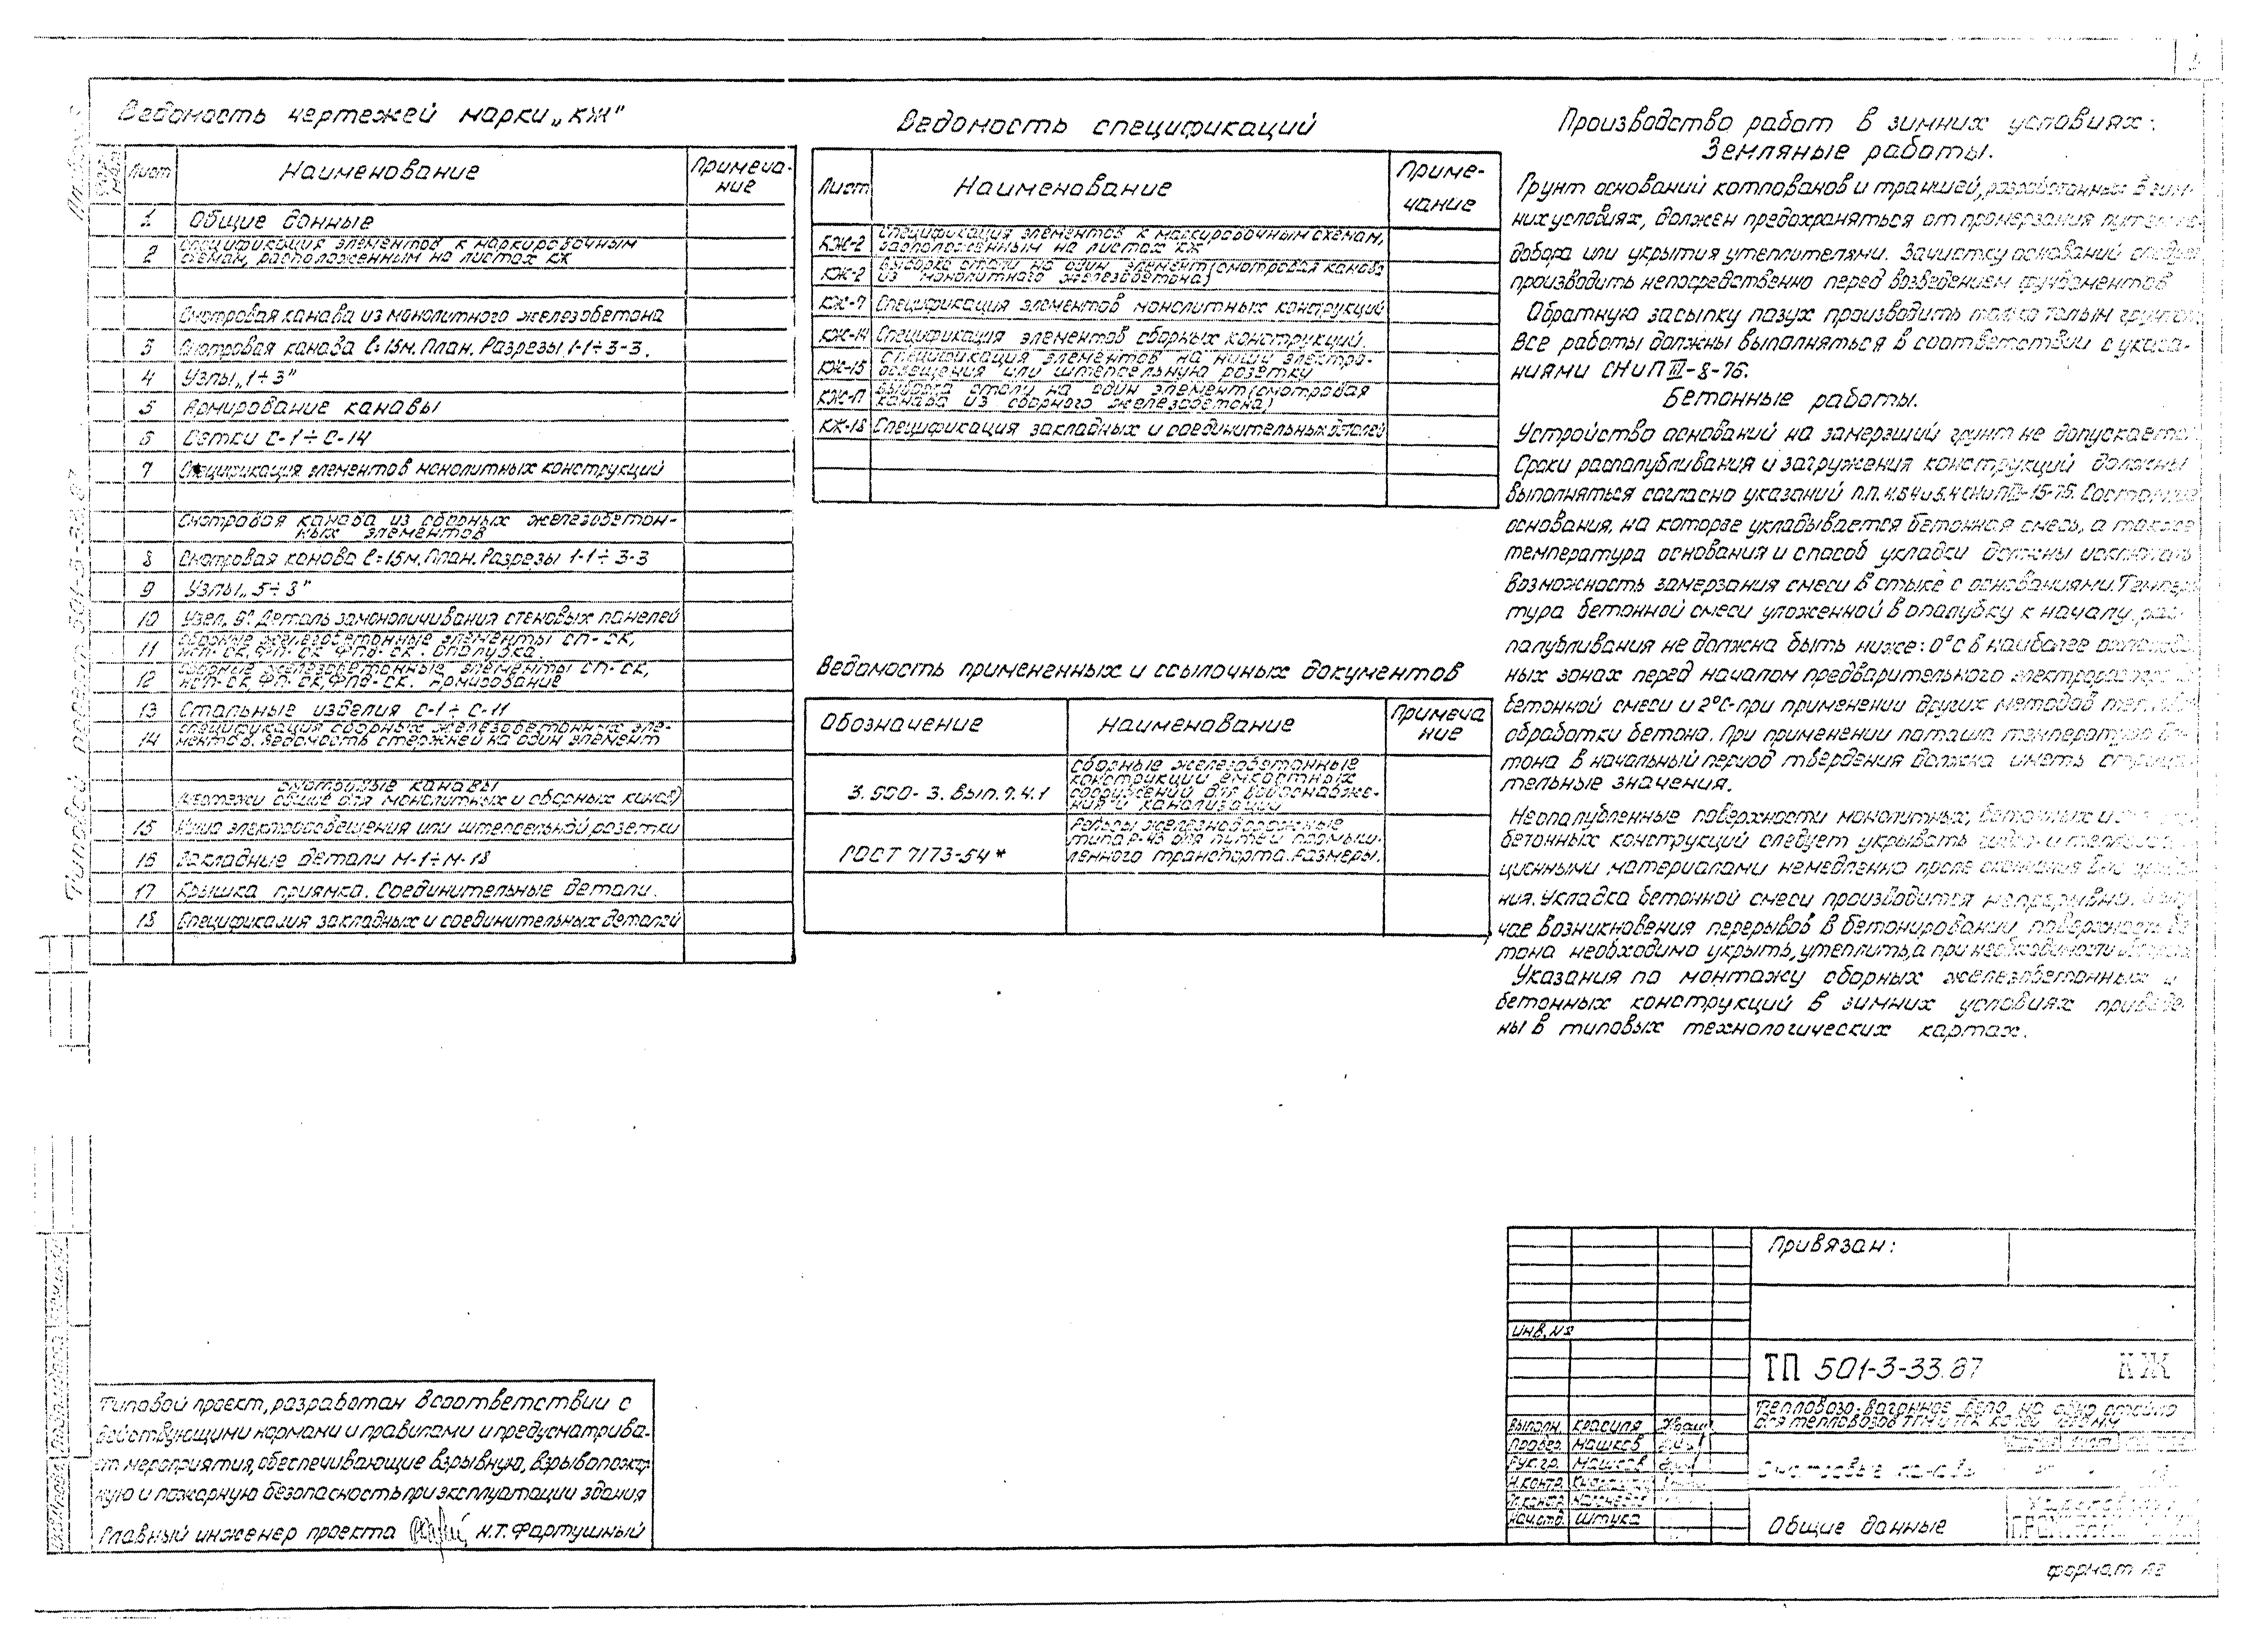 Ведомость чертежей марки „КЖ"
Лист Наименование Примеча-
ние
1 Общие данные
2 Спецификация элементов к маркировочным
схемам, расположенным на листах КЖ
Смотровая канава из монолитного железобетона
3 Смотровая канава ℓ=15м. План. Разрезы 1-1÷3-3.
4 Узлы „1÷3"
5 Армирование канавы
6 Сетки С-1÷С-14
7 Спецификация элементов монолитных конструкций
Смотровая канава из сборных железобетон-
ных элементов
8 Смотровая канава ℓ=15м. План. Разрезы 1-1÷3-3
9 Узлы „5÷8"
10 Узел „9". Деталь замоноличивания стеновых панелей
11 Сборные железобетонные элементы СП-СК,
НСП-СК, ФП-СК, ФПВ-СК. Опалубка.
12 Сборные железобетонные элементы СП-СК,
НСП-СК, ФП-СК, ФПВ-СК. Армирование
13 Стальные изделия С-1÷С-11
14 Спецификация сборных железобетонных эле-
ментов. Ведомость стержней на один элемент
Смотровые канавы
(чертежи общие для монолитных и сборных канав)
15 Ниша электроосвещения или штепсельной розетки
16 Закладные детали М-1÷М-18
17 Крышка приямка. Соединительные детали.
18 Спецификация закладных и соединительных деталей
Ведомость спецификаций
Лист Наименование Приме-
чание
КЖ-2 Спецификация элементов к маркировочным схемам,
расположенным на листах КЖ
КЖ-2 Выборка стали на один элемент (смотровая канава
из монолитного железобетона)
КЖ-7 Спецификация элементов монолитных конструкций
КЖ-14 Спецификация элементов сборных конструкций.
КЖ-15 Спецификация элементов на нишу электро-
освещения или штепсельную розетку
КЖ-17 Выборка стали на один элемент (смотровая
канава из сборного железобетона)
КЖ-18 Спецификация закладных и соединительных деталей
Ведомость примененных и ссылочных документов
Обозначение Наименование Примеча
ние
3.900-3. Вып. 7.4.1 Сборные железобетонные
конструкции емкостных
сооружений для водоснабже-
ния и канализации
ГОСТ 7173-54* Рельсы железнодорожные
типа Р-43 для путей промыш-
ленного транспорта. Размеры.
Производство работ в зимних условиях:
Земляные работы.
Грунт оснований котлованов и траншей, разработанных в зим-
них условиях, должен предохраняться от промерзания путем не-
добора или укрытия утеплителями. Зачистку оснований следует
производить непосредственно перед возведением фундаментов
Обратную засыпку пазух производить только талым грунтом.
Все работы должны выполняться в соответствии с указа-
ниями СНиП III-8-76.
Бетонные работы.
Устройство оснований на замерзший грунт не допускается
Сроки распалубливания и загружения конструкций должны
выполняться согласно указаний п.п. 4.54 и 5.4 СНиП III-15-75. Состояние
основания, на которое укладывается бетонная смесь, а также
температура основания и способ укладки должны исключать
возможность замерзания смеси в стыке с основаниями. Темпера-
тура бетонной смеси уложенной в опалубку к началу рас-
палубливания не должна быть ниже: 0°С в наиболее охлажден-
ных зонах перед началом предварительного электроразогрева
бетонной смеси и 2°С-при применении других методов тепловой
обработки бетона. При применении поташа температура бе-
тона в начальный период твердения должна иметь отрица-
тельные значения.
Неопалубленные поверхности монолитных, бетонных и
бетонных конструкций следует укрывать гидро- и теплоизоля-
ционными материалами немедленно после окончания
ния. Укладка бетонной смеси производится непрерывно. В слу-
чае возникновения перерывов в бетонировании поверхность бе-
тона необходимо укрыть, утеплить, а при необходимости
Указания по монтажу сборных железобетонных и
бетонных конструкций в зимних условиях приведе-
ны в типовых технологических картах.
Типовой проект 501-3-33.87
Типовой проект, разработан в соответствии с
действующими нормами и правилами и предусматрива-
ет мероприятия, обеспечивающие взрывную, взрывопожар-
ную и пожарную безопасность при эксплуатации здания
Главный инженер проекта Н.Т. Фартушный
Привязан:
Инв. №
ТП 501-3-33.87 КЖ
Тепловозо-вагонное депо на одно стойло
для тепловозов ТГМ и ТГК колеи
Выполн. Красиля
Провер. Машков
Рук.гр. Машков
Н.контр.
Нач.отд. Штука
Смотровые канавы
Общие данные
Харьковский
формат А2